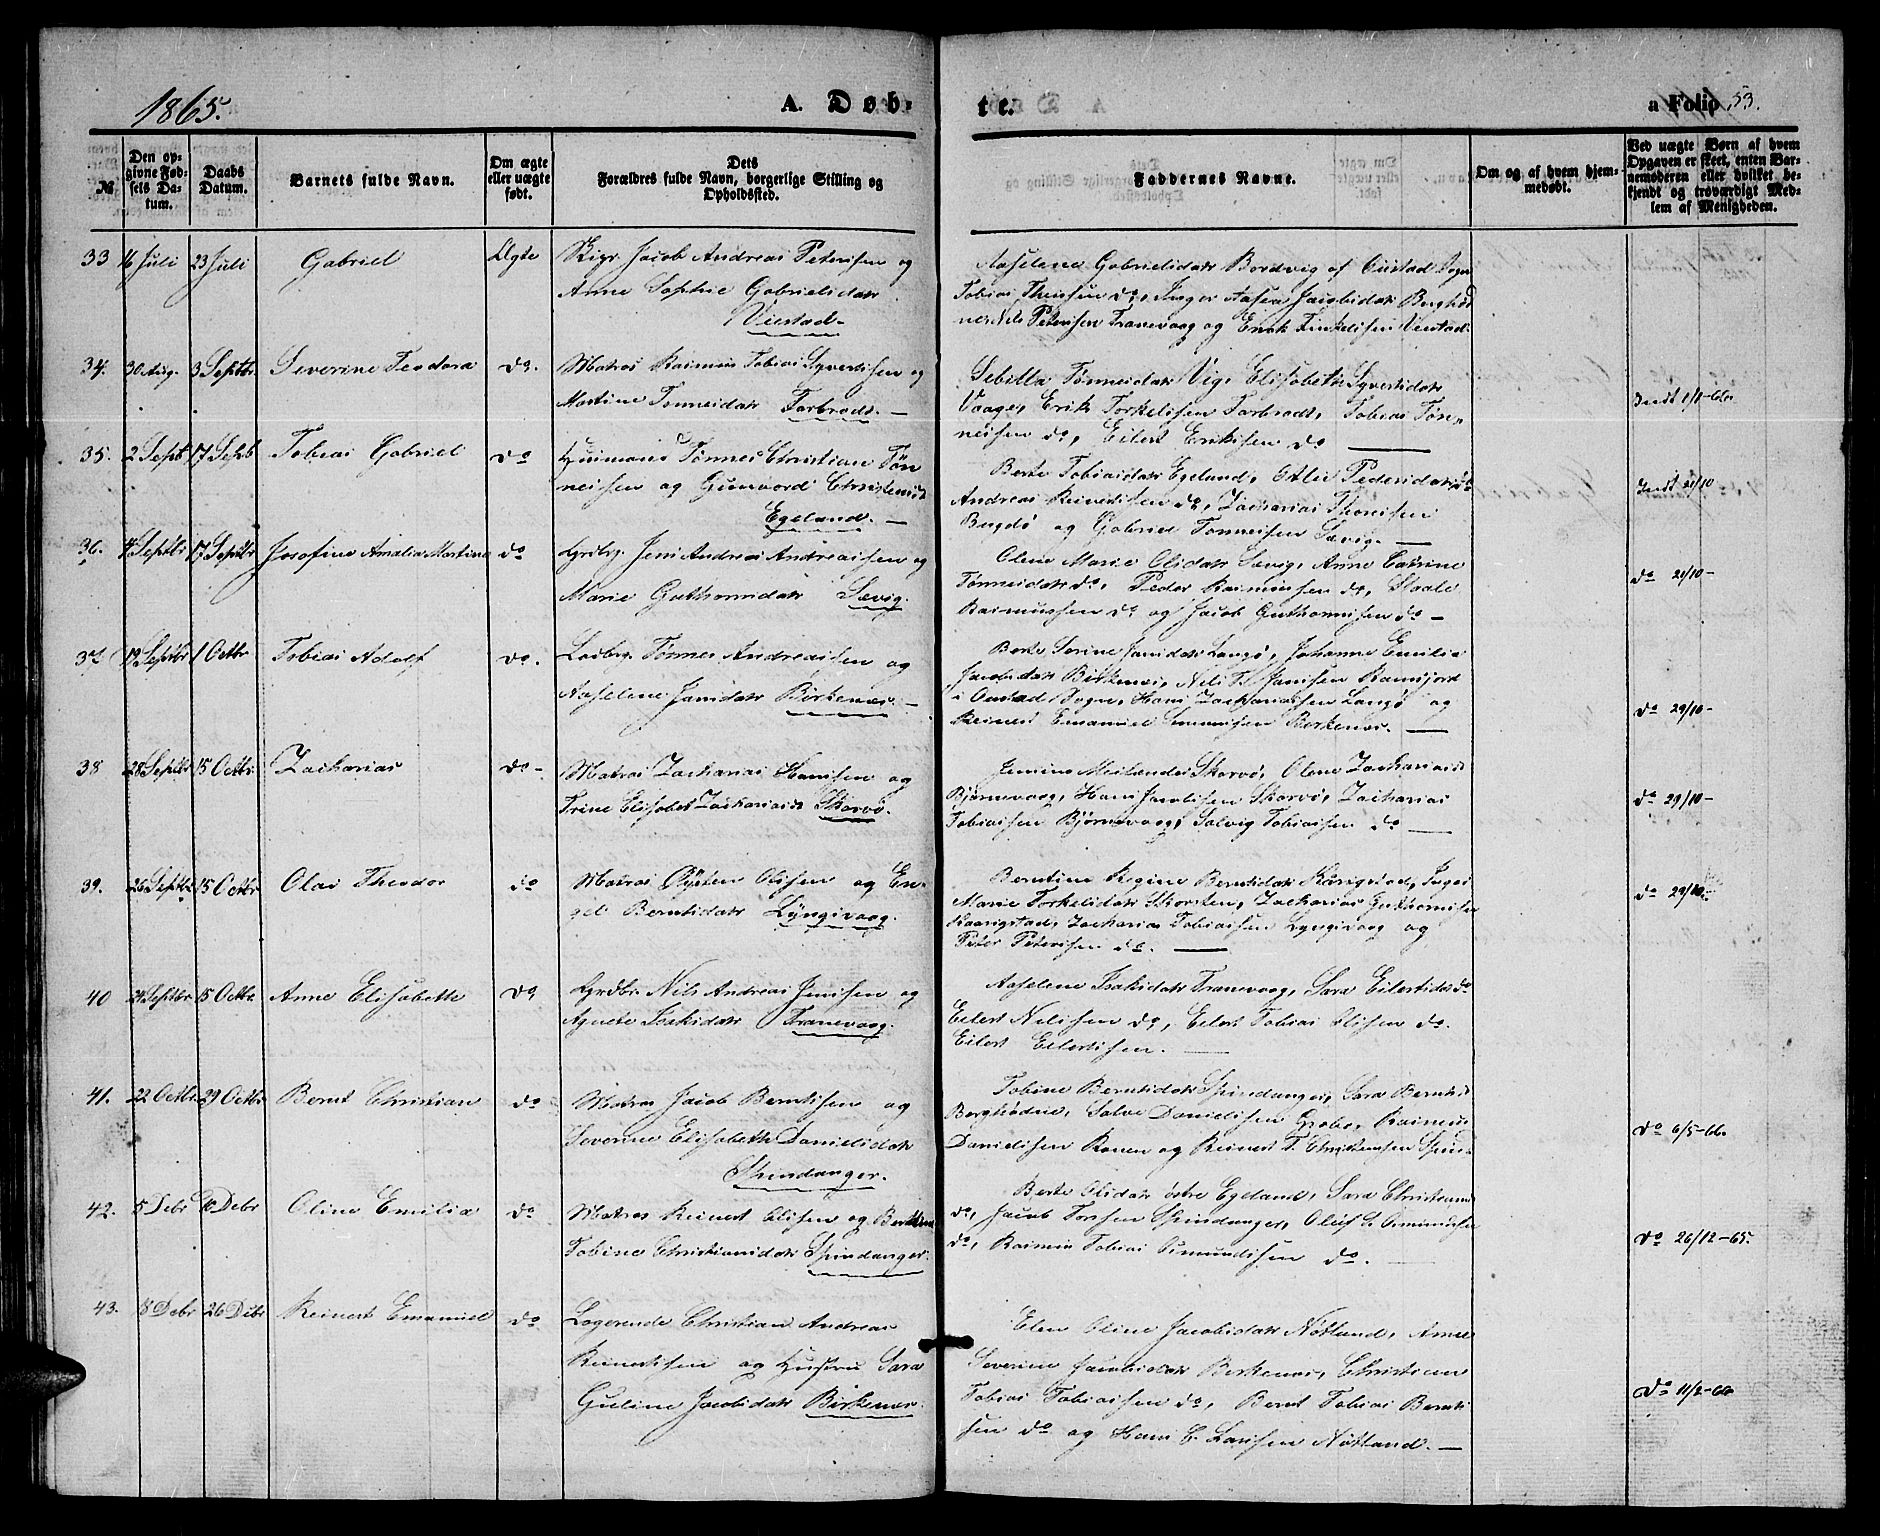 1865.
A. Døb-
te.
a Folio 53.
№
Den op-
givne Fød-
sels Da-
tum.
Daabs
Datum.
Barnets fulde Navn.
Om ægte
eller uægte
født.
Dets
Forældres fulde Navn, borgerlige Stilling og
Opholdssted.
Faddernes Navne.
Om og af hvem hjem-
medøbt.
Ved uægte Børn af hvem
Opgaven er skeet, enten Bar-
nemoderen eller hvilket be-
kjendt og troværdigt Med-
lem af Menigheden.
33 16 Juli 23 Juli Gabriel Ægte
Jacob Andreas Petersen og
Anne Sophie Gabrielsdatr
Aaselene Gabrielsdatr Bordvig af
Tobias do, Inger Aasea Jacobsdatr
Petersen Tranevaag og
34. 30 Aug. 3 Septbr. Severine Teodora do.
Matros Rasmus Tobias Syvertsen og
Martine Tønnesdatr Farbrodt. —
Sebilla Tønnesdatr Vig, Elisabeth Syvertsdatr
Vaage, Erik Torkelsen Farbrodt, Tobias Tøn-
nesen do, Eilert Eriksen do
Indt 1/1-66
35. 2 Septb. 17 Septb Tobias Gabriel do
Huusmand Tønnes Christian Tøn
nesen og Gunvord
Egeland. —
Berte Tobiasdatr Egeland, Pedersdatr do
Andreas Reinertsen do, Zacharias Thorsen
Bugdø og Gabriel Tønnesen Sævig. —
Indt 21/10
36. 14 Septbr 17 Septbr Josefine Amalia Martine do
Grdbr. Jens Andreas Andreassen og
Marie Guthormsdatr Sævig.
Oline Marie Olsdatr Sævig, Anne Catrine
Tønnesdatr do, Peder Rasmussen do, Staale
Rasmussen do og Jacob Guthormsen do —
do 21/10 —
37 19 Septbr 1 Octbr Tobias Adolf do.
Tønnes Andreassen og
Aaselene Jansdatr Birkenes. —
Berte Serine Jansdatr Langø, Johanne Emilie
Jacobsdatr Birkenes, Nils T. Jansen Ramsjord
i Sogn, Hans Zachariassen Langø og
Reinert Emanuel Birkenes. —
do 29/10 —
38 28 Septbr 15 Octbr. Zacharias do —
Matros Zacharias Hansen og
Trine Elisabet Zachariasd. Skarvø.
Skarvø, Olene Zachariasd
Bjørnevaag, Hans Jacobsen Skarvø, Zacharias
Tobiassen Bjørnevaag, Salvig Tobiassen do —
do 29/10 —
39. 26 Septbr 15 Octbr Olai Theodor do
Matros Øysten Olsen og En-
gel Berntsdatr Lyngsvaag.
Berntine Regine Berntsdatr Inger
Marie Torkelsdatr Skarsten, Zacharias Guthormsen
Zacharias Tobiassen Lyngsvaag og
Peter Petersen do. —
do 29/10
40 24 Septbr. 15 Octbr. Anne Elisabeth do
Grdbr. Nils Andreas Jensen og
Agnete Isaksdatr Tranevaag.
Aaselene Isaksdatr Tranevaag, Sara Eilertsdr do
Eilert Nilsen do, Eilert Tobias Olsen do.
Eilert Eilertsen. —
41. 22 Octbr. 29 Octbr. Bernt Christian do
Matros Jacob Berntsen og
Severine Elisabeth Danielsdatr
Spindanger.
Tobine Berntsdatr Spindanger, Sara Berntsd
Salve Danielsen Rasmus
Danielsen og Reinert T. Christensen
do 6/5-66.
42. 5 Debr 10 Debr Oline Emilie do
Matros Reinert Olsen og
Tobine Christiansdatr Spindanger.
Berte Olsdatr østre Egeland, Sara
do, Jacob Spindanger, Oluf
do, Rasmus Tobias Osmundsen do. —
do 26/12-65.
43. 18 Debr 26 Debr Reinert Emanuel do
Logerende Christian Andreas
Reinertsen og Hustru Sara
Guline Jacobsdatr Birkenes.
Elen Oline Jacobsdatr Nøtland, Anne
Severine Jacobsdatr Birkenes, Christian
Tobias Tobiassen do, Bernt Tobias Bernt-
sen do og Hans C. Larsen Nøtland. —
do 11/2-66